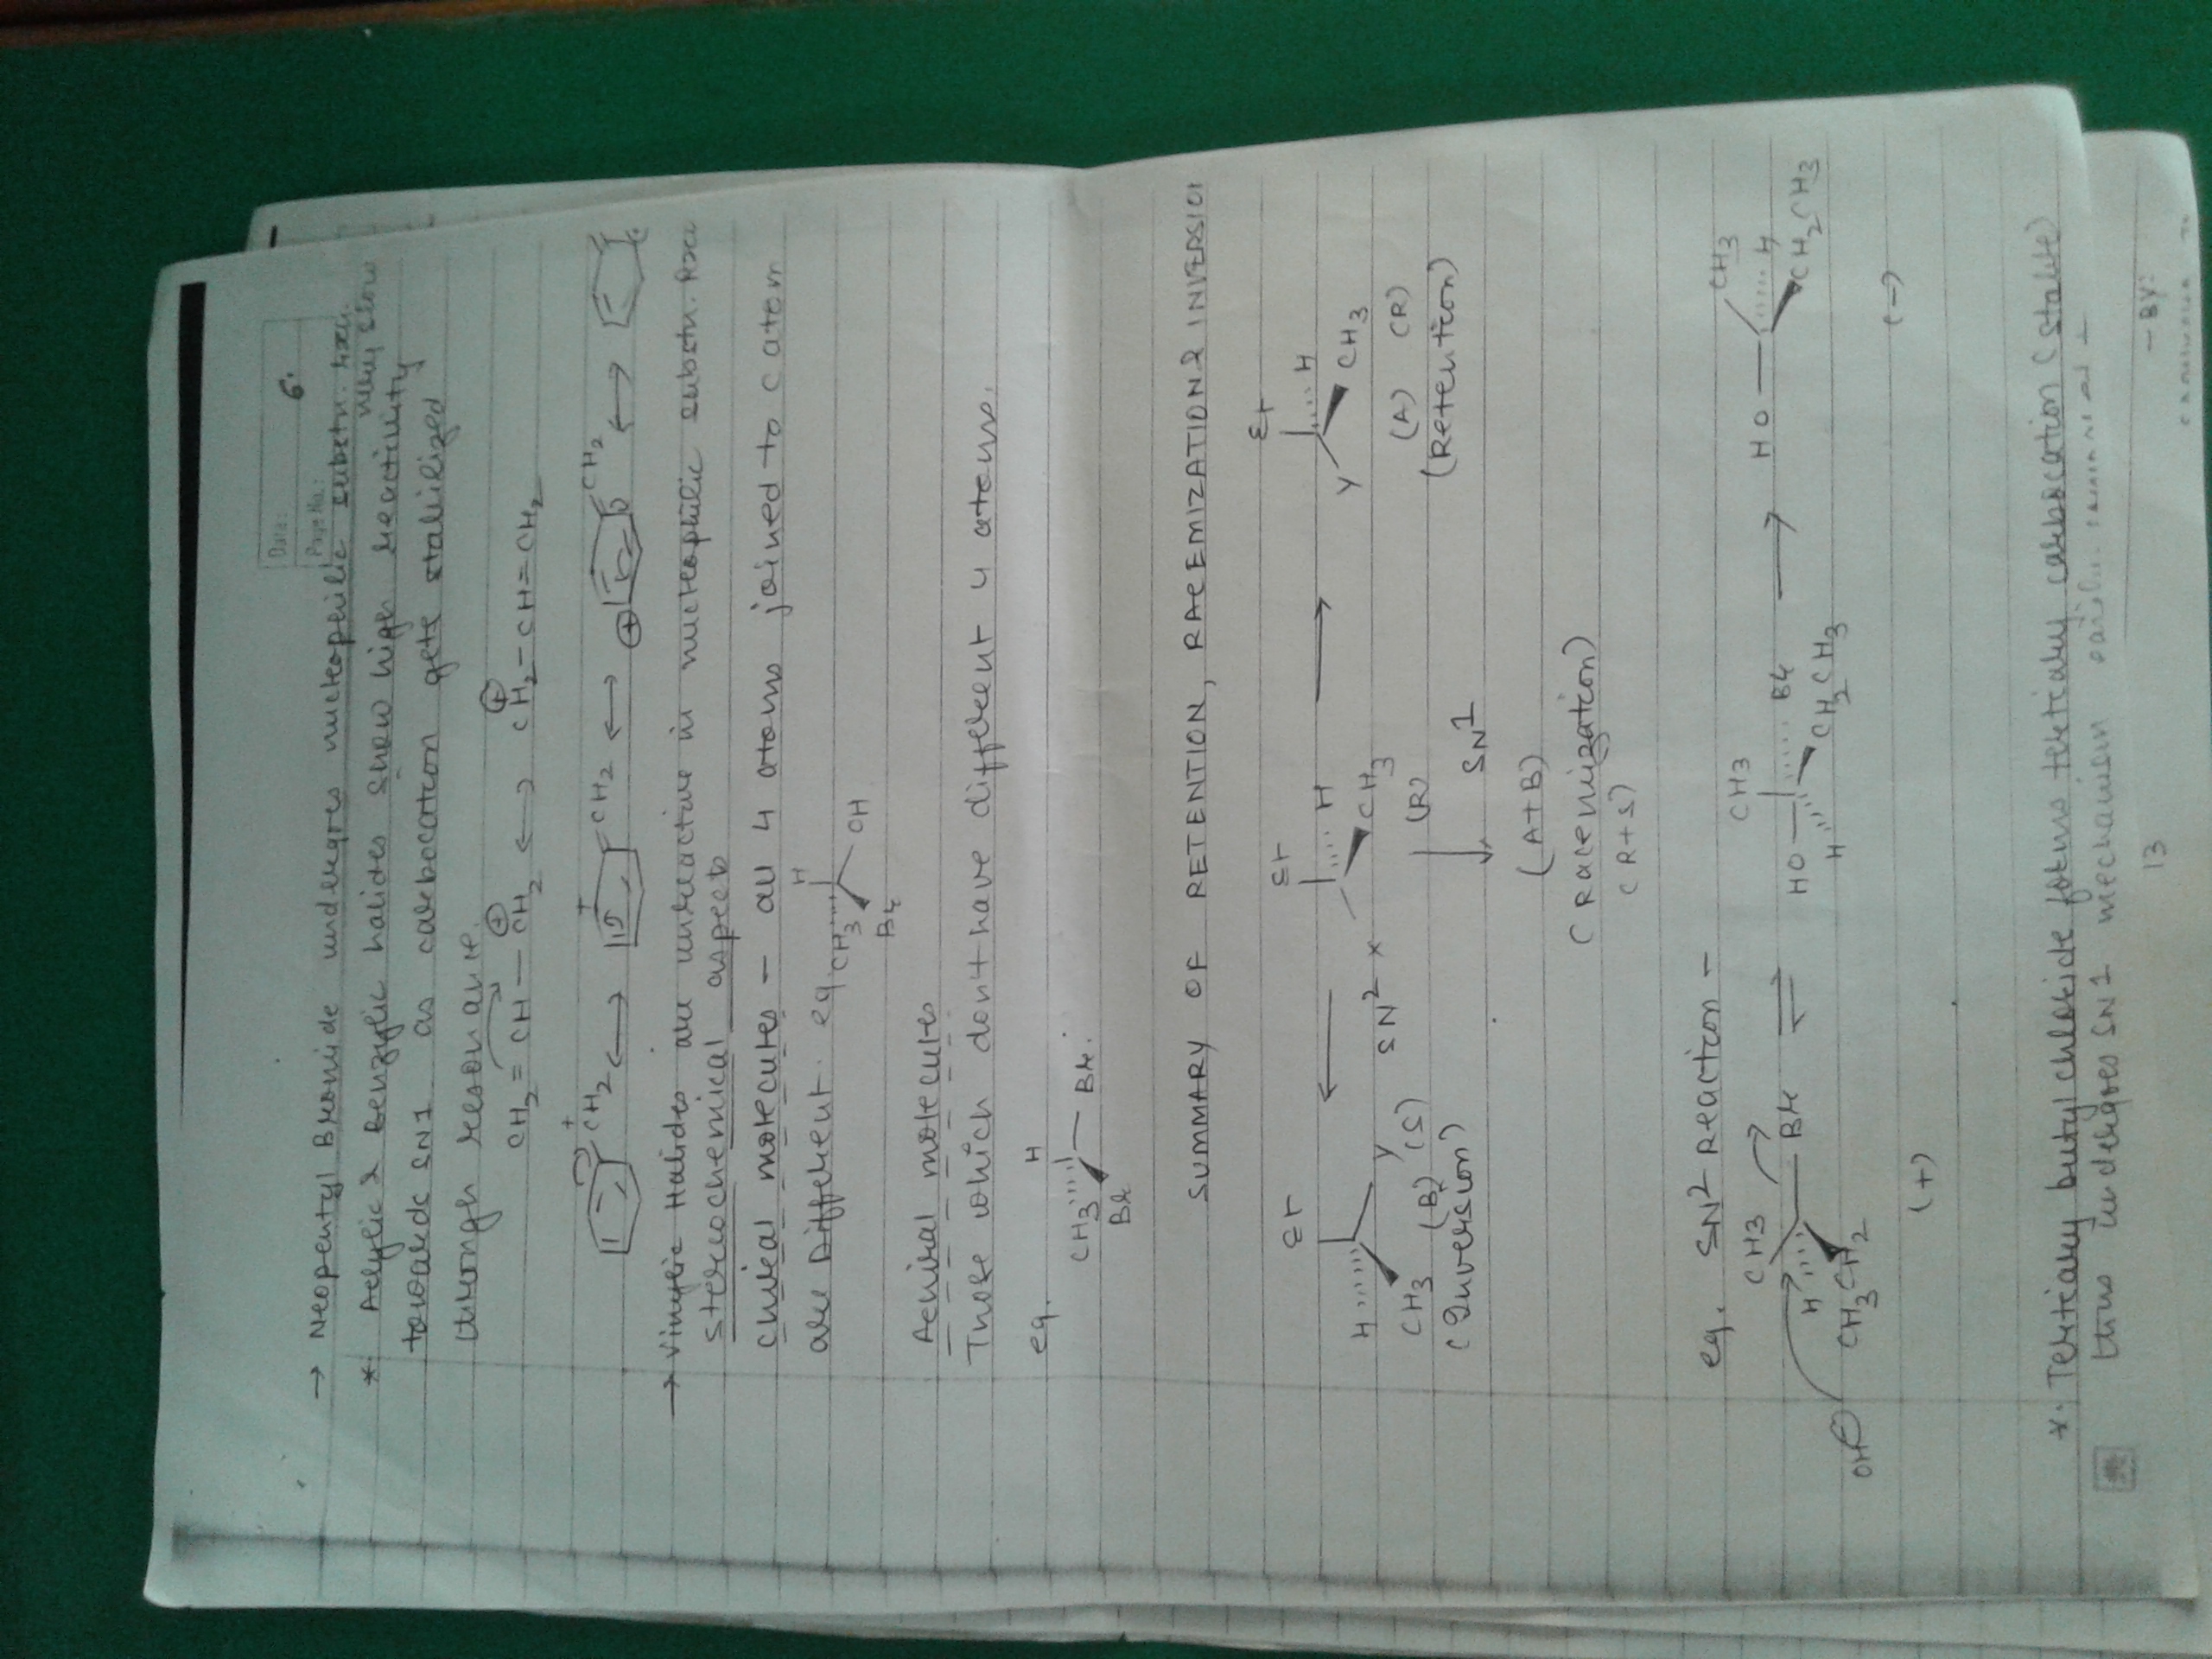 Date:
Page No.:
6.
→ Neopentyl Bromide undergoes nucleophilic substn. rxn.
very slow
* Allylic & Benzylic halides show high reactivity
towards SN1 as carbocation gets stabilized
through resonance.
CH2 = CH — CH2 ⊕ ↔ CH2 ⊕ - CH = CH2
CH2 + ↔ + CH2 ↔ ⊕ CH2 ↔
→ Vinylic Halides are unreactive in nucleophilic substn. Rxn
stereochemical aspects
chiral molecules — all 4 atoms joined to C atom
are Different. eg
H
CH3 OH
Br
Achiral molecules
Those which don't have different 4 atoms.
eg.
H
CH3 Br.
Br
SUMMARY OF RETENTION, RACEMIZATION & INVERSION
Et Et Et
H Y ← X H → Y H
CH3 SN2 CH3 CH3
(B) (S) (R) (A) (R)
(Inversion) SN1 (Retention)
(A+B)
(Racemization)
(R+S)
eg. SN2 Reaction -
CH3 CH3 CH3
OH⊖ H Br ⇌ HO Br → HO H
CH3CH2 H CH2CH3 CH2CH3
(+) (-)
*. Tertiary butyl chloride forms tertiary carbocation (stable)
thus undergoes SN1 mechanism
- BY:
13